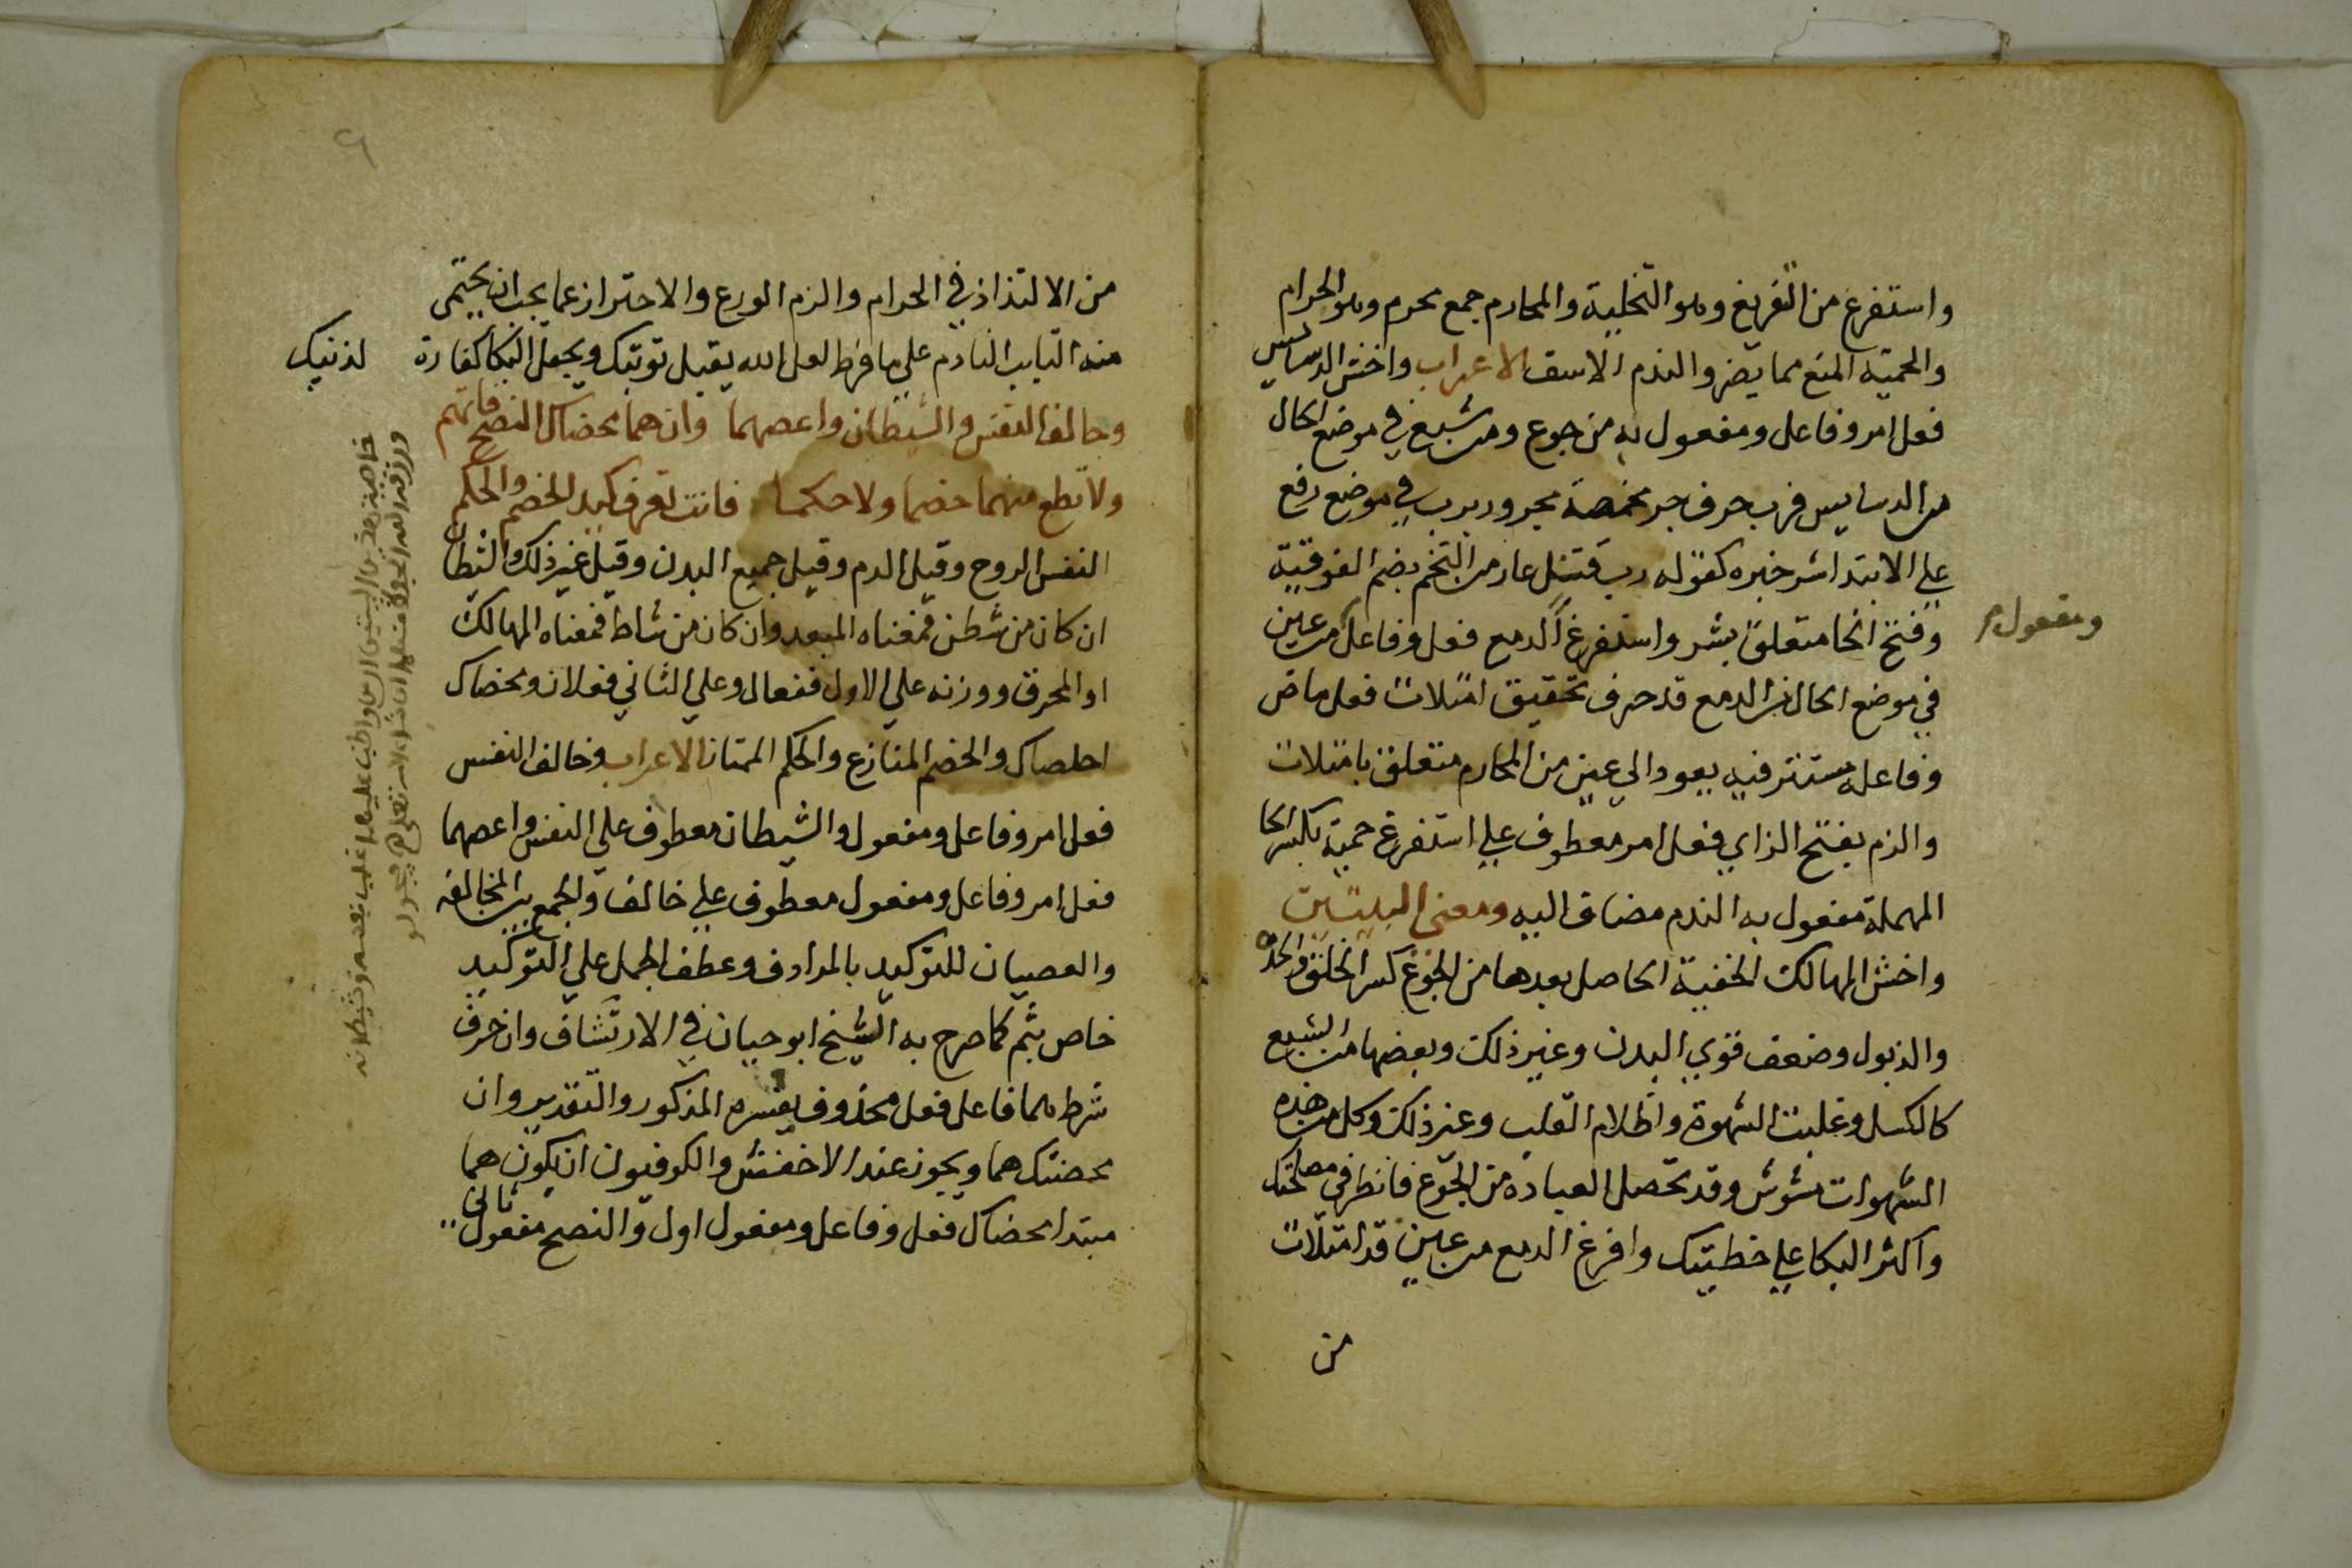 واستفرغ من التفريغ وهو التخلية والمحارم جمع محرم وهو الحرام
والحمية المنع مما يضر والندم الاسف الاعراب واخش الدسايس
فعل امر وفاعل ومفعول به من جوع ومن شبع في موضع الحال
من الدسايس فرب حرف جر مخمصة مجرور برب في موضع رفع
علي الابتدا شر خبره كقوله رب قتل عار من التخم بضم الفوقية
وفتح الخا متعلق بشر واستفرغ الدمع فعل وفاعل من عين
ومفعول
في موضع الحال من الدمع قد حرف تحقيق امتلات فعل ماض
وفاعله مستتر فيه يعود الي عين من المحارم متعلق بامتلات
والزم بفتح الزاي فعل امر معطوف علي استفرغ حمية بكسر الحا
المهملة مفعول به الندم مضاف اليه ومعني البيتين
واخش المهالك الخفية الحاصل بعدها من الجوع كسر الخلق والحدة
والذبول وضعف قوي البدن وغير ذلك وبعضها من الشبع
كالكسل وغلبت الشهوة واظلام القلب وغير ذلك وكل من هذه
الشهوات مشوش وقد تحصل العبادة من الجوع فانظر في مصلحتك
واكثر البكا علي خطيتك وافرغ الدمع من عين قد امتلات
من
من الالتذاذ في الحرام والزم الورع والاحتراز عما يجب ان يحتمى
منه التايب النادم علي ما فرط لعل الله يقبل توبتك ويجعل البكا كفارة لذنبك
وخالف النفس والشيطان واعصهما وان هما محضاك النصح فاتهم
ولا تطع منهما خصما ولا حكما فانت تعرف كيد الخصم والحكم
النفس الروح وقيل الدم وقيل جميع البدن وقيل غير ذلك والشيطان
ان كان من شطن فمعناه المبعد وان كان من شاط فمعناه الهالك
او المحرق ووزنه علي الاول فيعال وعلي الثاني فعلان ومحضاك
اخلصاك والخصم المنازع والحكم الاعراب وخالف النفس
فعل امر وفاعل ومفعول والشيطان معطوف علي النفس واعصهما
فعل امر وفاعل ومفعول معطوف علي خالف والجمع بين المخالفه
والعصيان للتوكيد بالمرادف وعطف الجمل علي التوكيد
خاص بثم كما صرح به الشيخ ابو حيان في الارتشاف وان حرف
شرط هما فاعل فعل محذوف يفسره المذكور والتقدير وان
محضتك هما ويجوز عند الاخفش والكوفيون ان يكون هما
مبتدا محضاك فعل وفاعل ومفعول اول والنصح مفعول ثاني
خاصية هذين البيتين